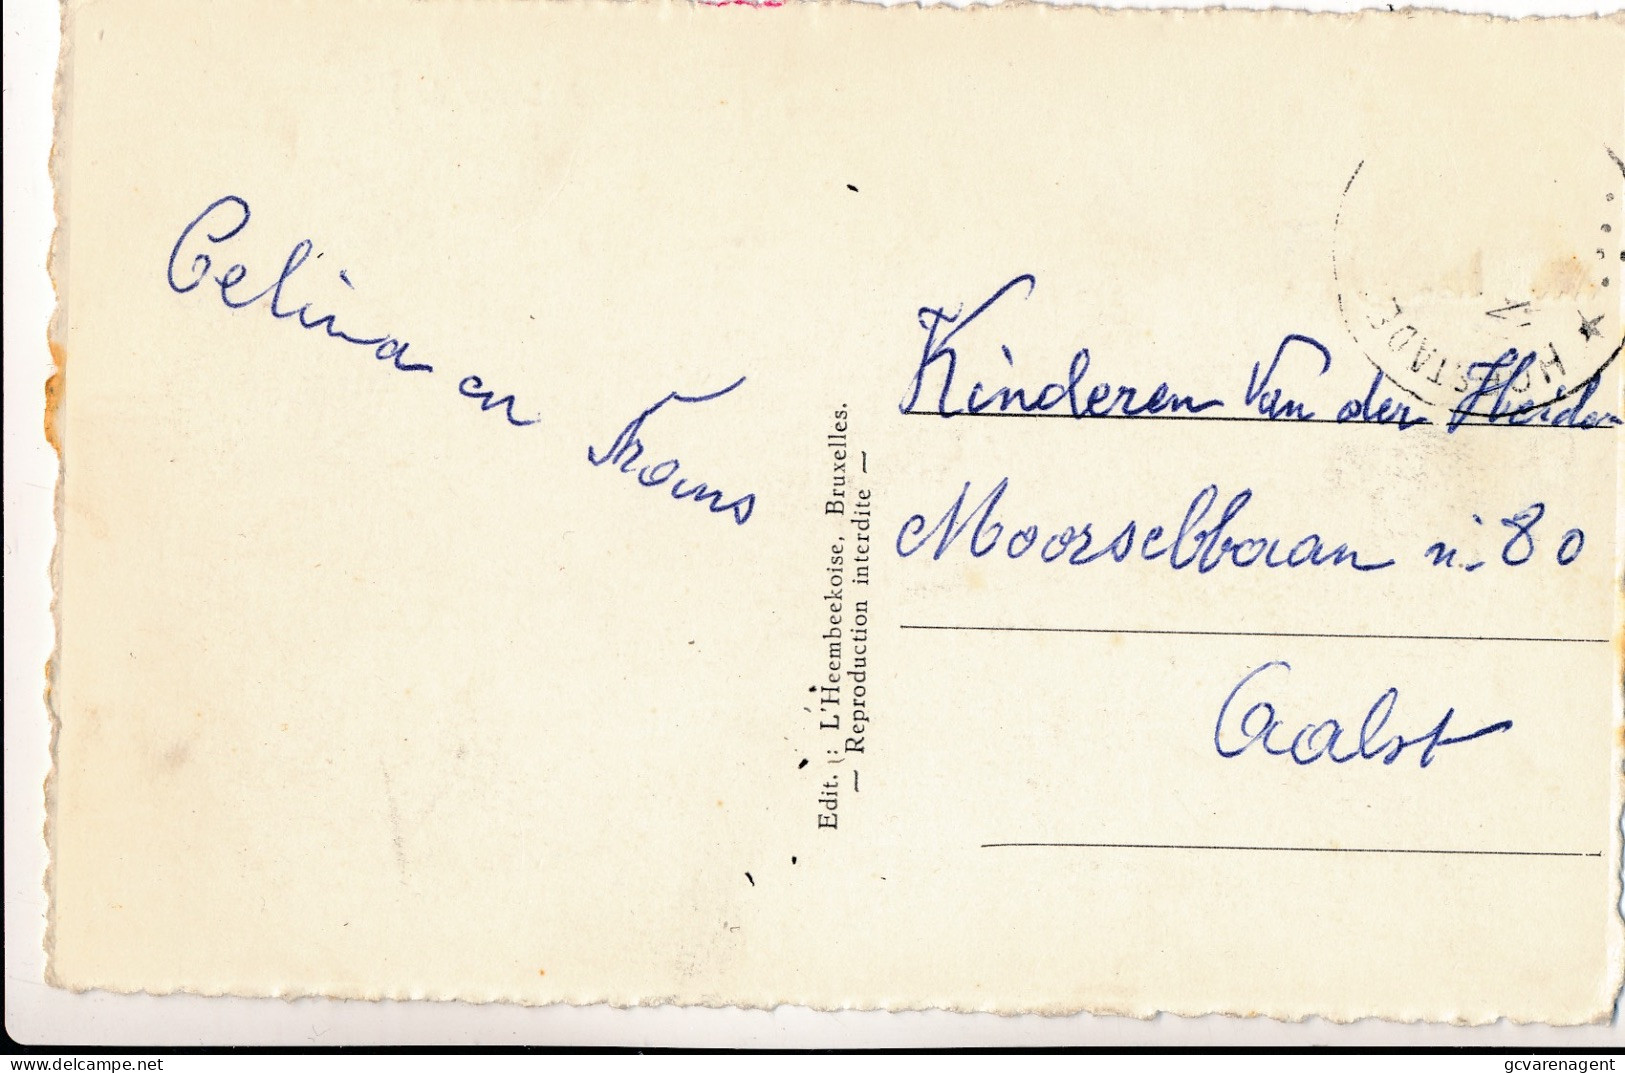 Celina en Frans
Edit. : L'Heembeekoise, Bruxelles.
— Reproduction interdite —
HOFSTADE
Kinderen Van der Heiden
Moorselbaan n: 80
Aalst
delcampe.net
gcvarenagent